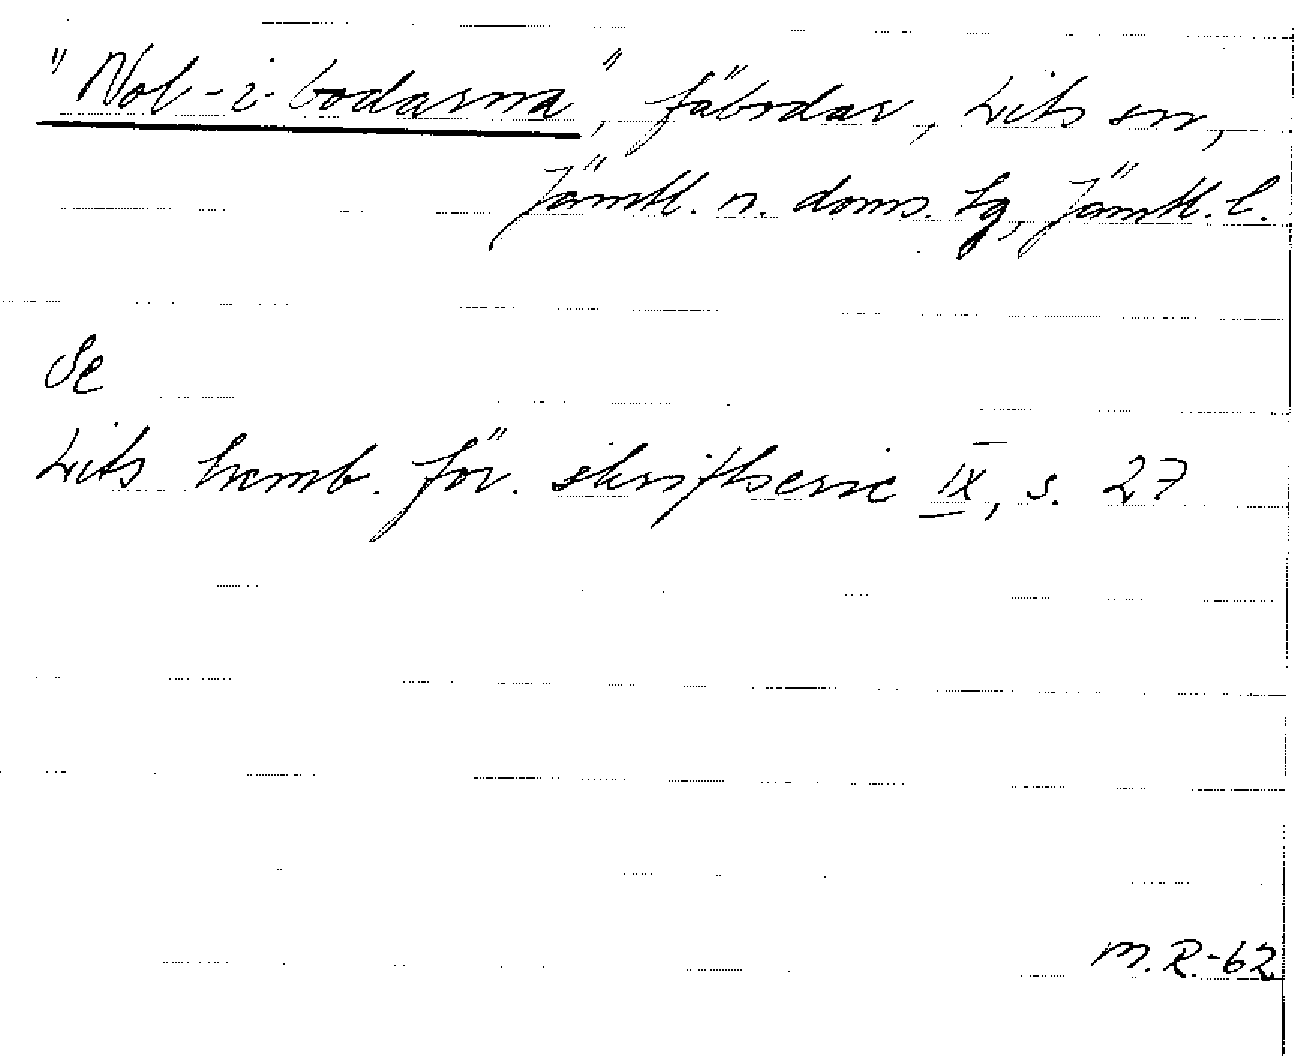 "Nol-i-bodarna", fäbodar, Lits sn,
Jämtl. n. doms. tg, Jämtl. l.
Se
Lits hemb. för. skriftserie IX, s. 27
M.R.-62